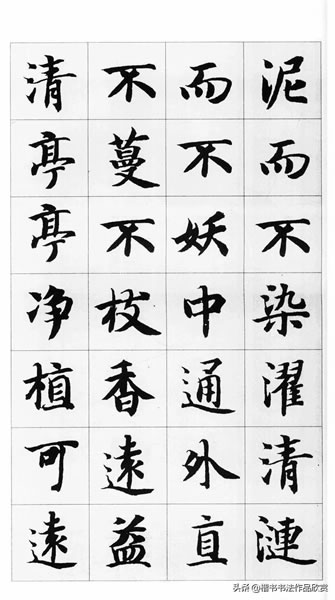 泥而不染濯清漣
而不妖中通外直
不蔓不枝香遠益
清亭亭净植可遠
头条 @楷书书法作品欣赏